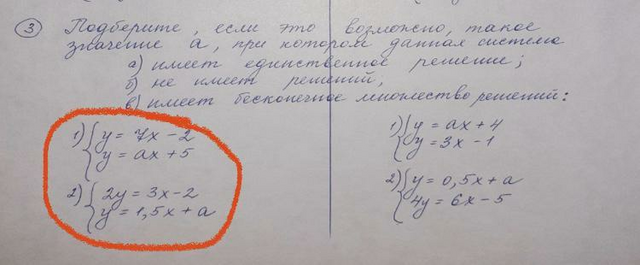 3 Подберите, если это возможно, такое
значение а, при котором данная система
а) имеет единственное решение;
б) не имеет решений;
в) имеет бесконечное множество решений:
1) { y = 7x - 2
y = ax + 5
2) { 2y = 3x - 2
y = 1,5x + a
1) { y = ax + 4
y = 3x - 1
2) { y = 0,5x + a
4y = 6x - 5